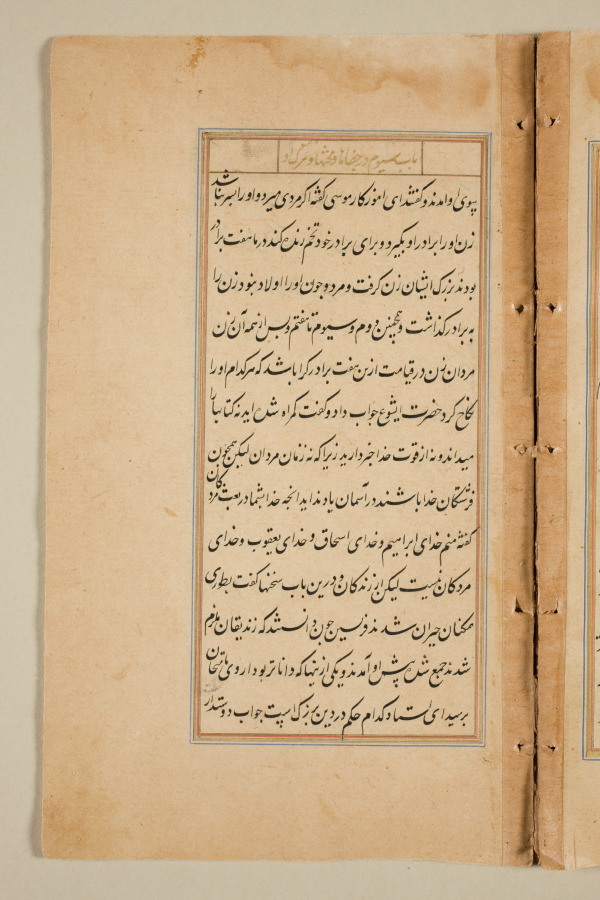 باب سیوم در جفاها و محنتها و مرگ او
بسوی او امدند و کفتند ای اموزکار موسی کفته اکر مردی میرد و اورا پسر نباشد
زن اورا برادر او بکیرد و برای برادر خود تخم زنده کند در ما هفت برادر
بودند بزرک ایشان زن کرفت و مرد و جون اورا اولاد نبود زن را
به برادر کذاشت و همجنین دوم و سیوم تا هفتم و پس از همه آن زن
مرد آن زن در قیامت ازین هفت برادر کرا باشد که هر کدام اورا
نکاح کرد حضرت ایشوع جواب داد و کفت کمراه شده اید نه کتابها را
میدانید و نه از قوت خدا خبر دارید زیرا که نه زنان نه مردان لیکن همجون
فرشتکان خدا باشند در آسمان یاد نداید انجه خدا بشما در بعث مردکان
کفته منم خدای ابراهیم و خدای اسحاق و خدای یعقوب و خدای
مردکان نیست لیکن از زندکان و درین باب سخنها کفت بطوری
همکنان حیران شدند و فریسین جون دانستند که زندیقان ملزم
شدند جمع شده پیش او آمدند و یکی از اینها که داناتر بود از روی امتحان
پرسید ای استاد کدام حکم در دین بزرک است جواب دوستدار